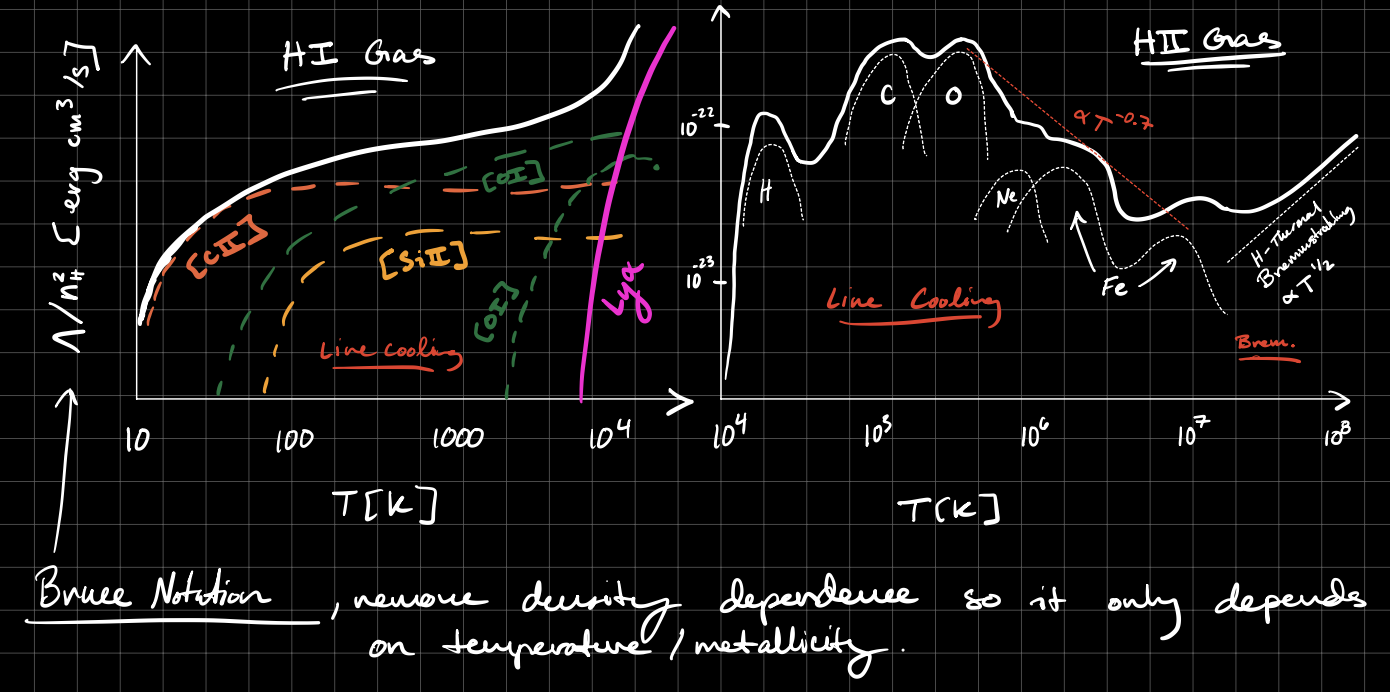 HI Gas
Λ/n_H² [erg cm³/s]
[CII]
[OI]
[SiII]
[OI]
Lyα
Line cooling
10 100 1000 10⁴
T[K]
HII Gas
10⁻²²
10⁻²³
H
C
O
Ne
Fe
∝ T⁻⁰·⁷
Line Cooling
H-Thermal
Bremmstrahlung
∝ T^1/2
Brem.
10⁴ 10⁵ 10⁶ 10⁷ 10⁸
T[K]
Bruce Notation, remove density dependence so it only depends
on temperature/metallicity.